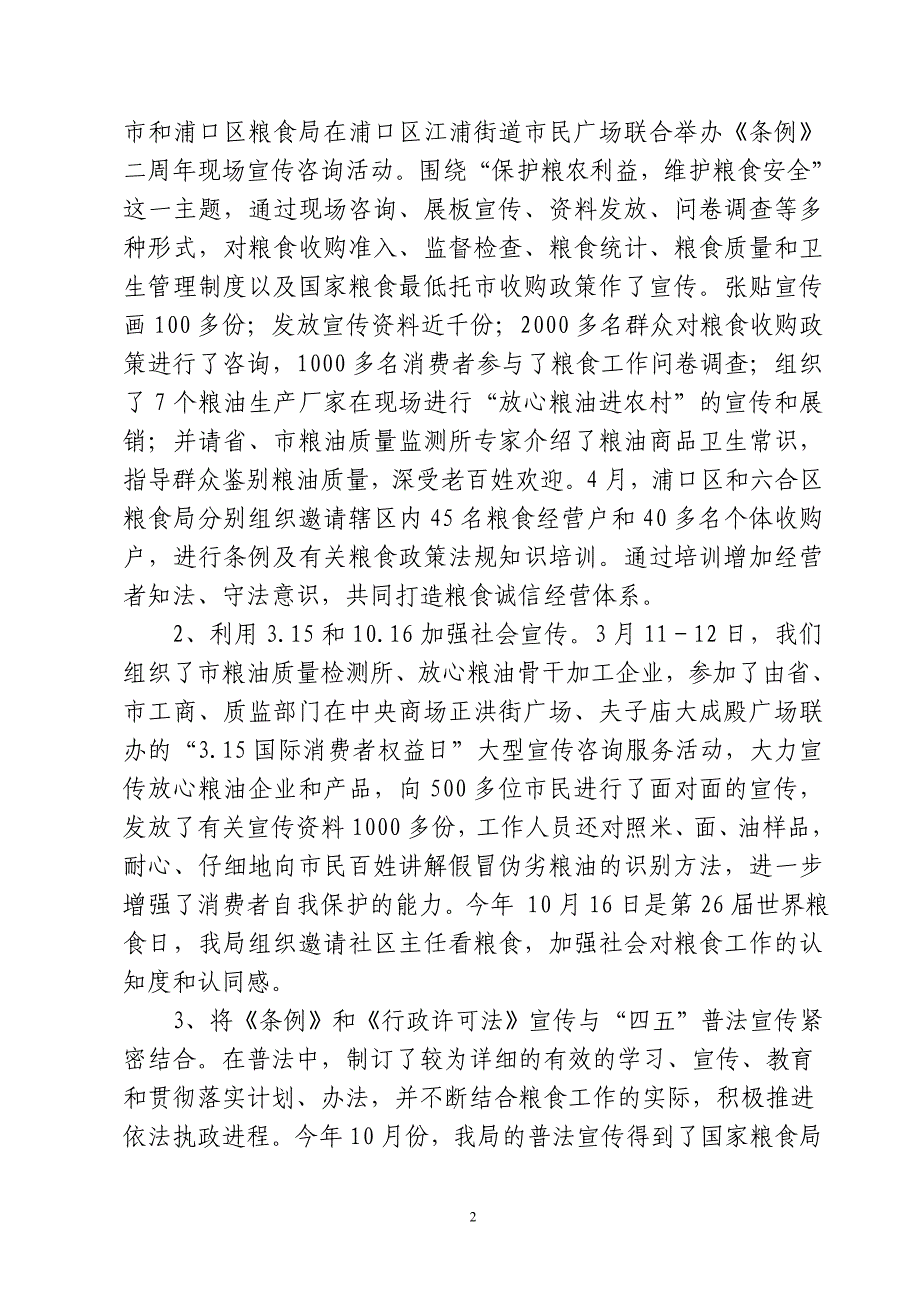 市和浦口区粮食局在浦口区江浦街道市民广场联合举办《条例》
二周年现场宣传咨询活动。围绕“保护粮农利益，维护粮食安全”
这一主题，通过现场咨询、展板宣传、资料发放、问卷调查等多
种形式，对粮食收购准入、监督检查、粮食统计、粮食质量和卫
生管理制度以及国家粮食最低托市收购政策作了宣传。张贴宣传
画100多份；发放宣传资料近千份；2000多名群众对粮食收购政
策进行了咨询，1000多名消费者参与了粮食工作问卷调查；组织
了7个粮油生产厂家在现场进行“放心粮油进农村”的宣传和展
销；并请省、市粮油质量监测所专家介绍了粮油商品卫生常识，
指导群众鉴别粮油质量，深受老百姓欢迎。4月，浦口区和六合区
粮食局分别组织邀请辖区内45名粮食经营户和40多名个体收购
户，进行条例及有关粮食政策法规知识培训。通过培训增加经营
者知法、守法意识，共同打造粮食诚信经营体系。
2、利用3.15和10.16加强社会宣传。3月11－12日，我们
组织了市粮油质量检测所、放心粮油骨干加工企业，参加了由省、
市工商、质监部门在中央商场正洪街广场、夫子庙大成殿广场联
办的“3.15国际消费者权益日”大型宣传咨询服务活动，大力宣
传放心粮油企业和产品，向500多位市民进行了面对面的宣传，
发放了有关宣传资料1000多份，工作人员还对照米、面、油样品，
耐心、仔细地向市民百姓讲解假冒伪劣粮油的识别方法，进一步
增强了消费者自我保护的能力。今年 10月16日是第26届世界粮
食日，我局组织邀请社区主任看粮食，加强社会对粮食工作的认
知度和认同感。
3、将《条例》和《行政许可法》宣传与“四五”普法宣传紧
密结合。在普法中，制订了较为详细的有效的学习、宣传、教育
和贯彻落实计划、办法，并不断结合粮食工作的实际，积极推进
依法执政进程。今年10月份，我局的普法宣传得到了国家粮食局
2